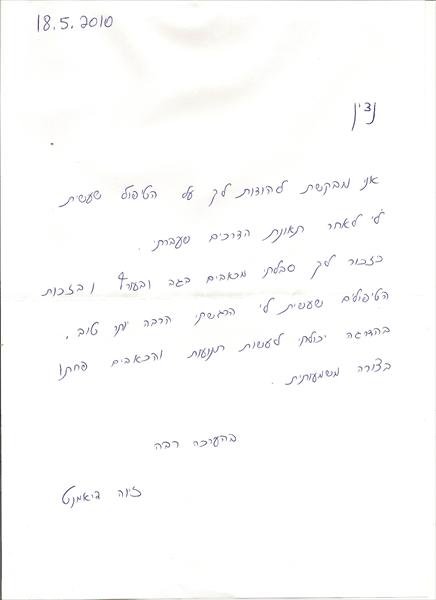 18.5.2010
נדין
אני מבקשת להודות לך על הטיפול שעשית
לי לאחר תאונת הדרכים שעברתי.
כזכור לך סבלתי מכאבים בגב ובעורף ובזכות
הטיפולים שעשית לי הרגשתי הרבה יותר טוב.
בהדרגה יכולתי לעשות תנועות והכאבים פחתו
בצורה משמעותית.
בהערכה רבה
זיוה דיאמנט